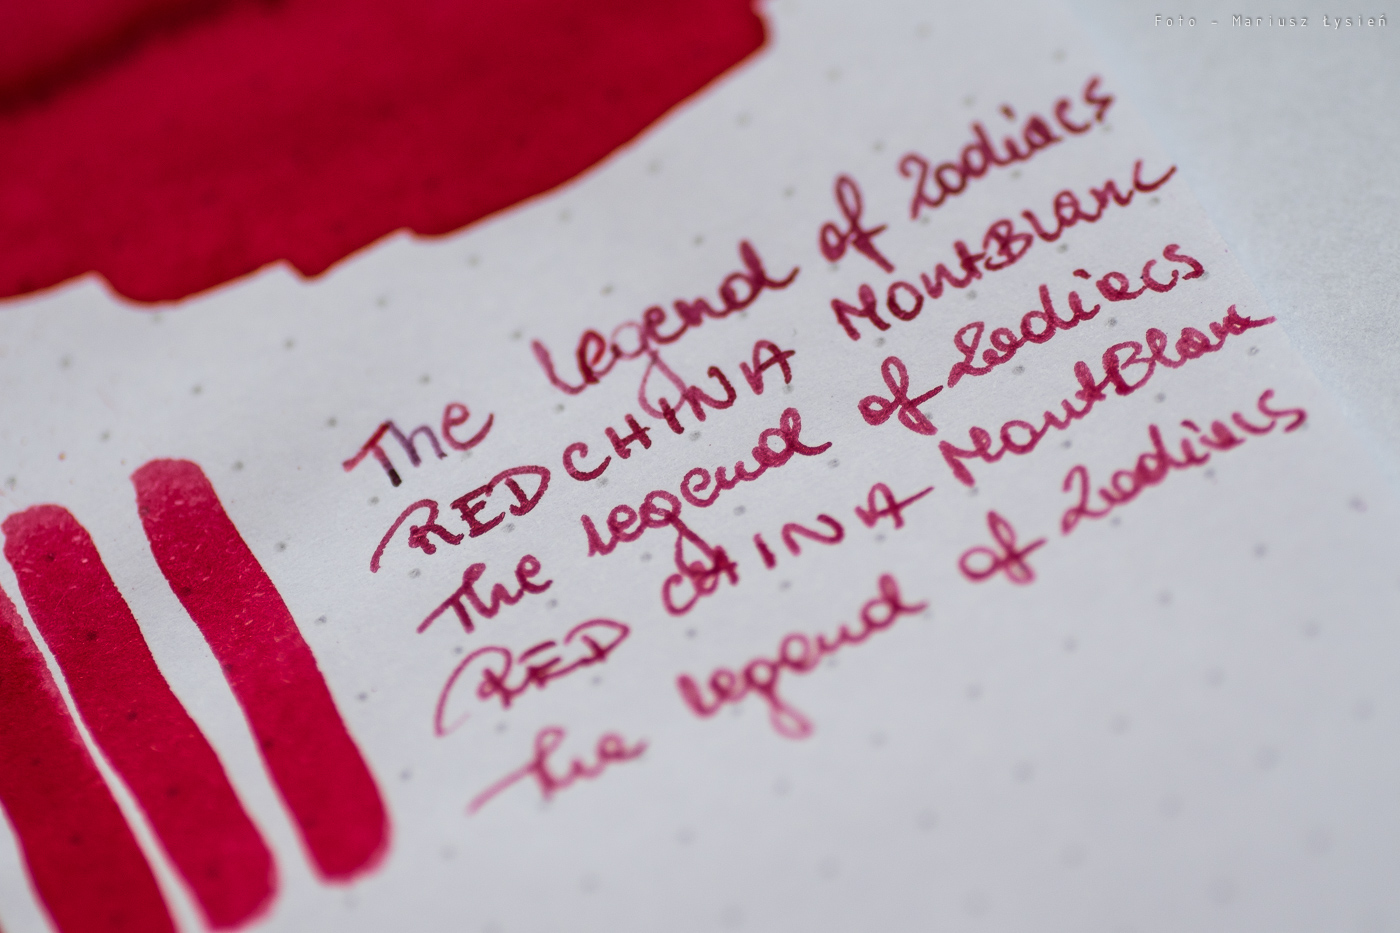 Foto - Mariusz Łysień
The Legend of Zodiacs
RED CHINA MontBlanc
The Legend of Zodiacs
RED CHINA MontBlanc
The Legend of Zodiacs